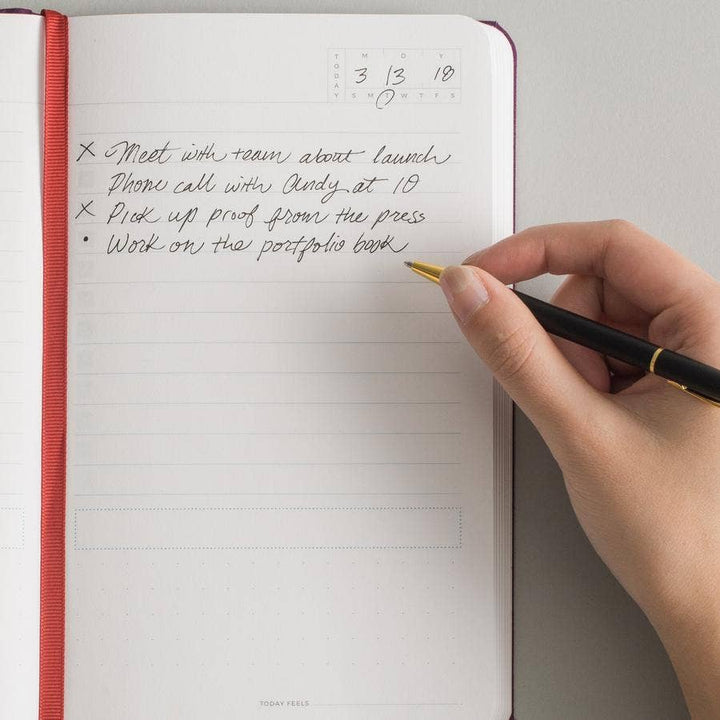 TODAY
M D Y
3 13 18
S M T W T F S
X Meet with team about launch
Phone call with Andy at 10
X Pick up proof from the press
• Work on the portfolio book
TODAY FEELS